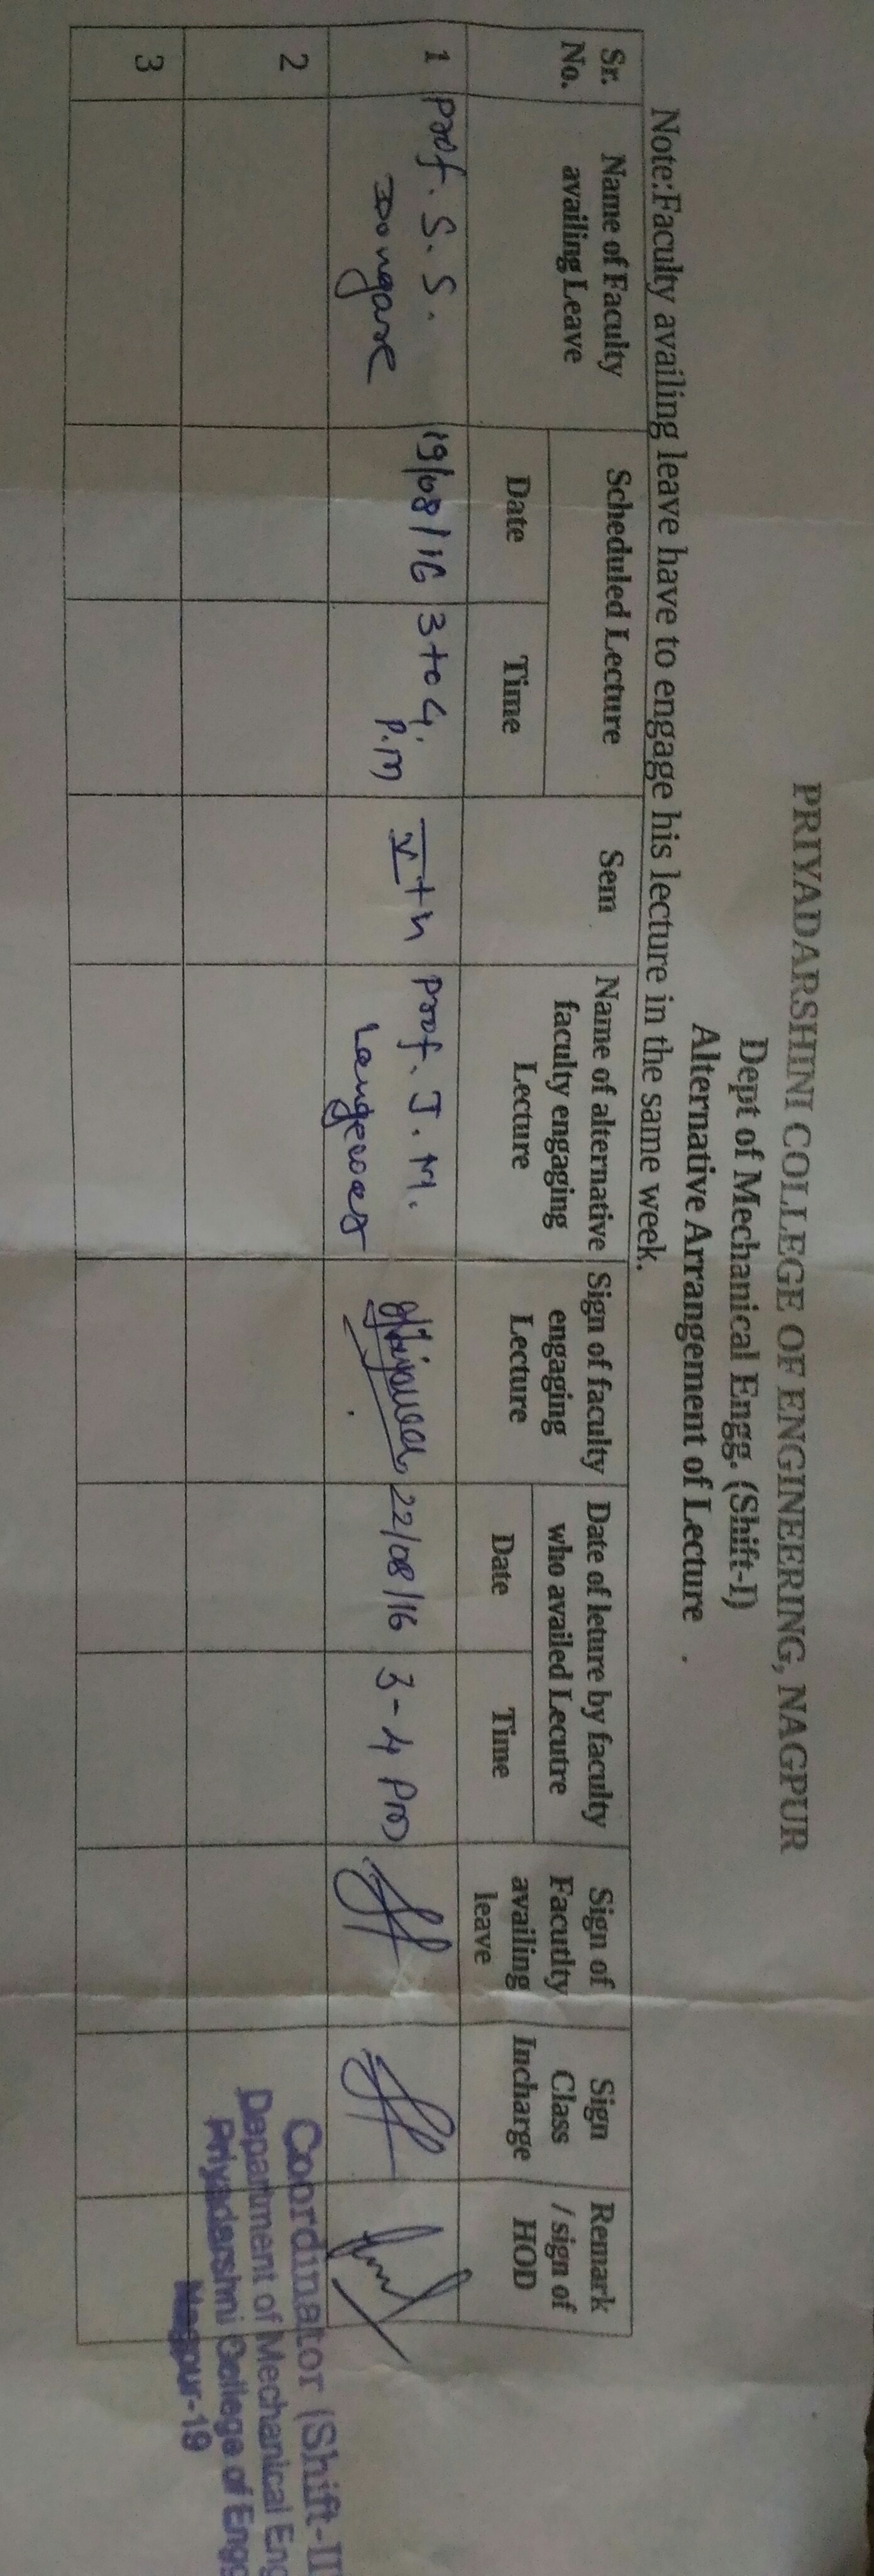 PRIYADARSHINI COLLEGE OF ENGINEERING, NAGPUR
Dept of Mechanical Engg. (Shift-I)
Alternative Arrangement of Lecture
Note:Faculty availing leave have to engage his lecture in the same week.
Sr. No.
Name of Faculty availing Leave
Scheduled Lecture
Date
Time
Sem
Name of alternative faculty engaging Lecture
Sign of faculty engaging Lecture
Date of leture by faculty who availed Lecutre
Date
Time
Sign of Facutlty availing leave
Sign Class Incharge
Remark / sign of HOD
1
Prof. S. S. Dongare
19/08/16
3 to 4. P.m
V th
Prof. J. M.
22/08/16
3-4 Pm
2
3
Coordinator (Shift-II
Department of Mechanical Eng
Priyadarshni College of Engg
Nagpur-19